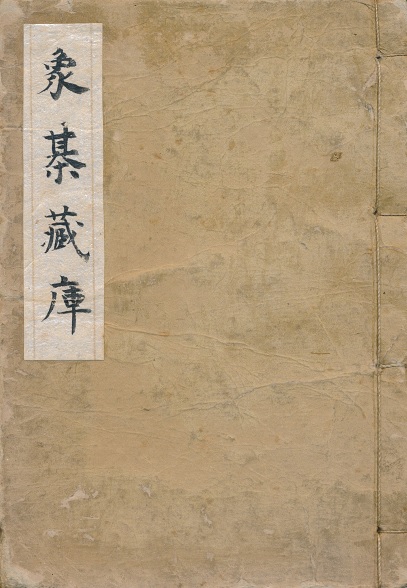 象棊藏庫